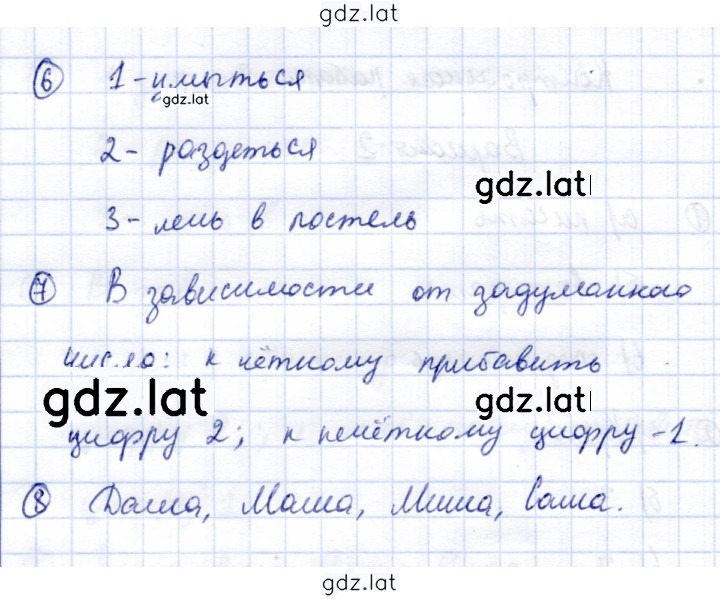 gdz.lat
6 1 - умыться
gdz.lat
2 - раздеться
gdz.lat
3 - лечь в постель
7 В зависимости от задуманного
числа: к чётному прибавить
gdz.lat gdz.lat
цифру 2; к нечётному цифру - 1.
8 Даша, Маша, Миша, Саша.
gdz.lat